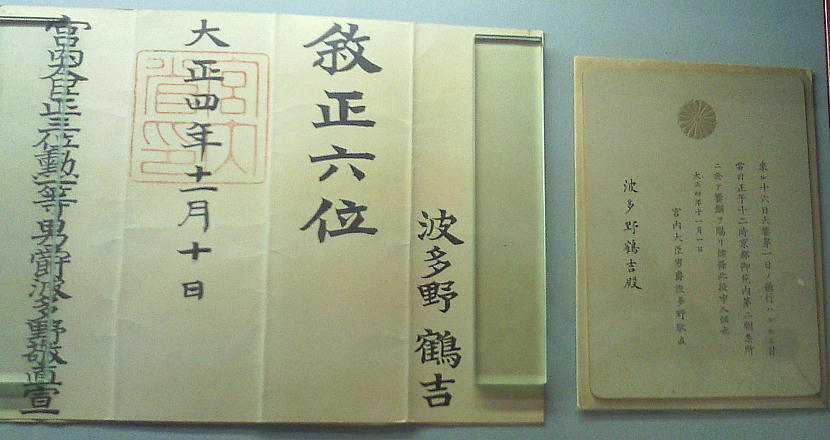 波多野鶴吉
敘正六位
大正四年十一月十日
宮内省印
宮内大臣正三位勲一等男爵波多野敬直宣
來ル十六日大饗第一日ノ儀行ハセラルヽニ付
當日正午十二時京都御苑内第二朝集所
ニ於テ饗饌ヲ賜リ候條此段申入候也
大正四年十一月一日
宮内大臣男爵波多野敬直
波多野鶴吉殿